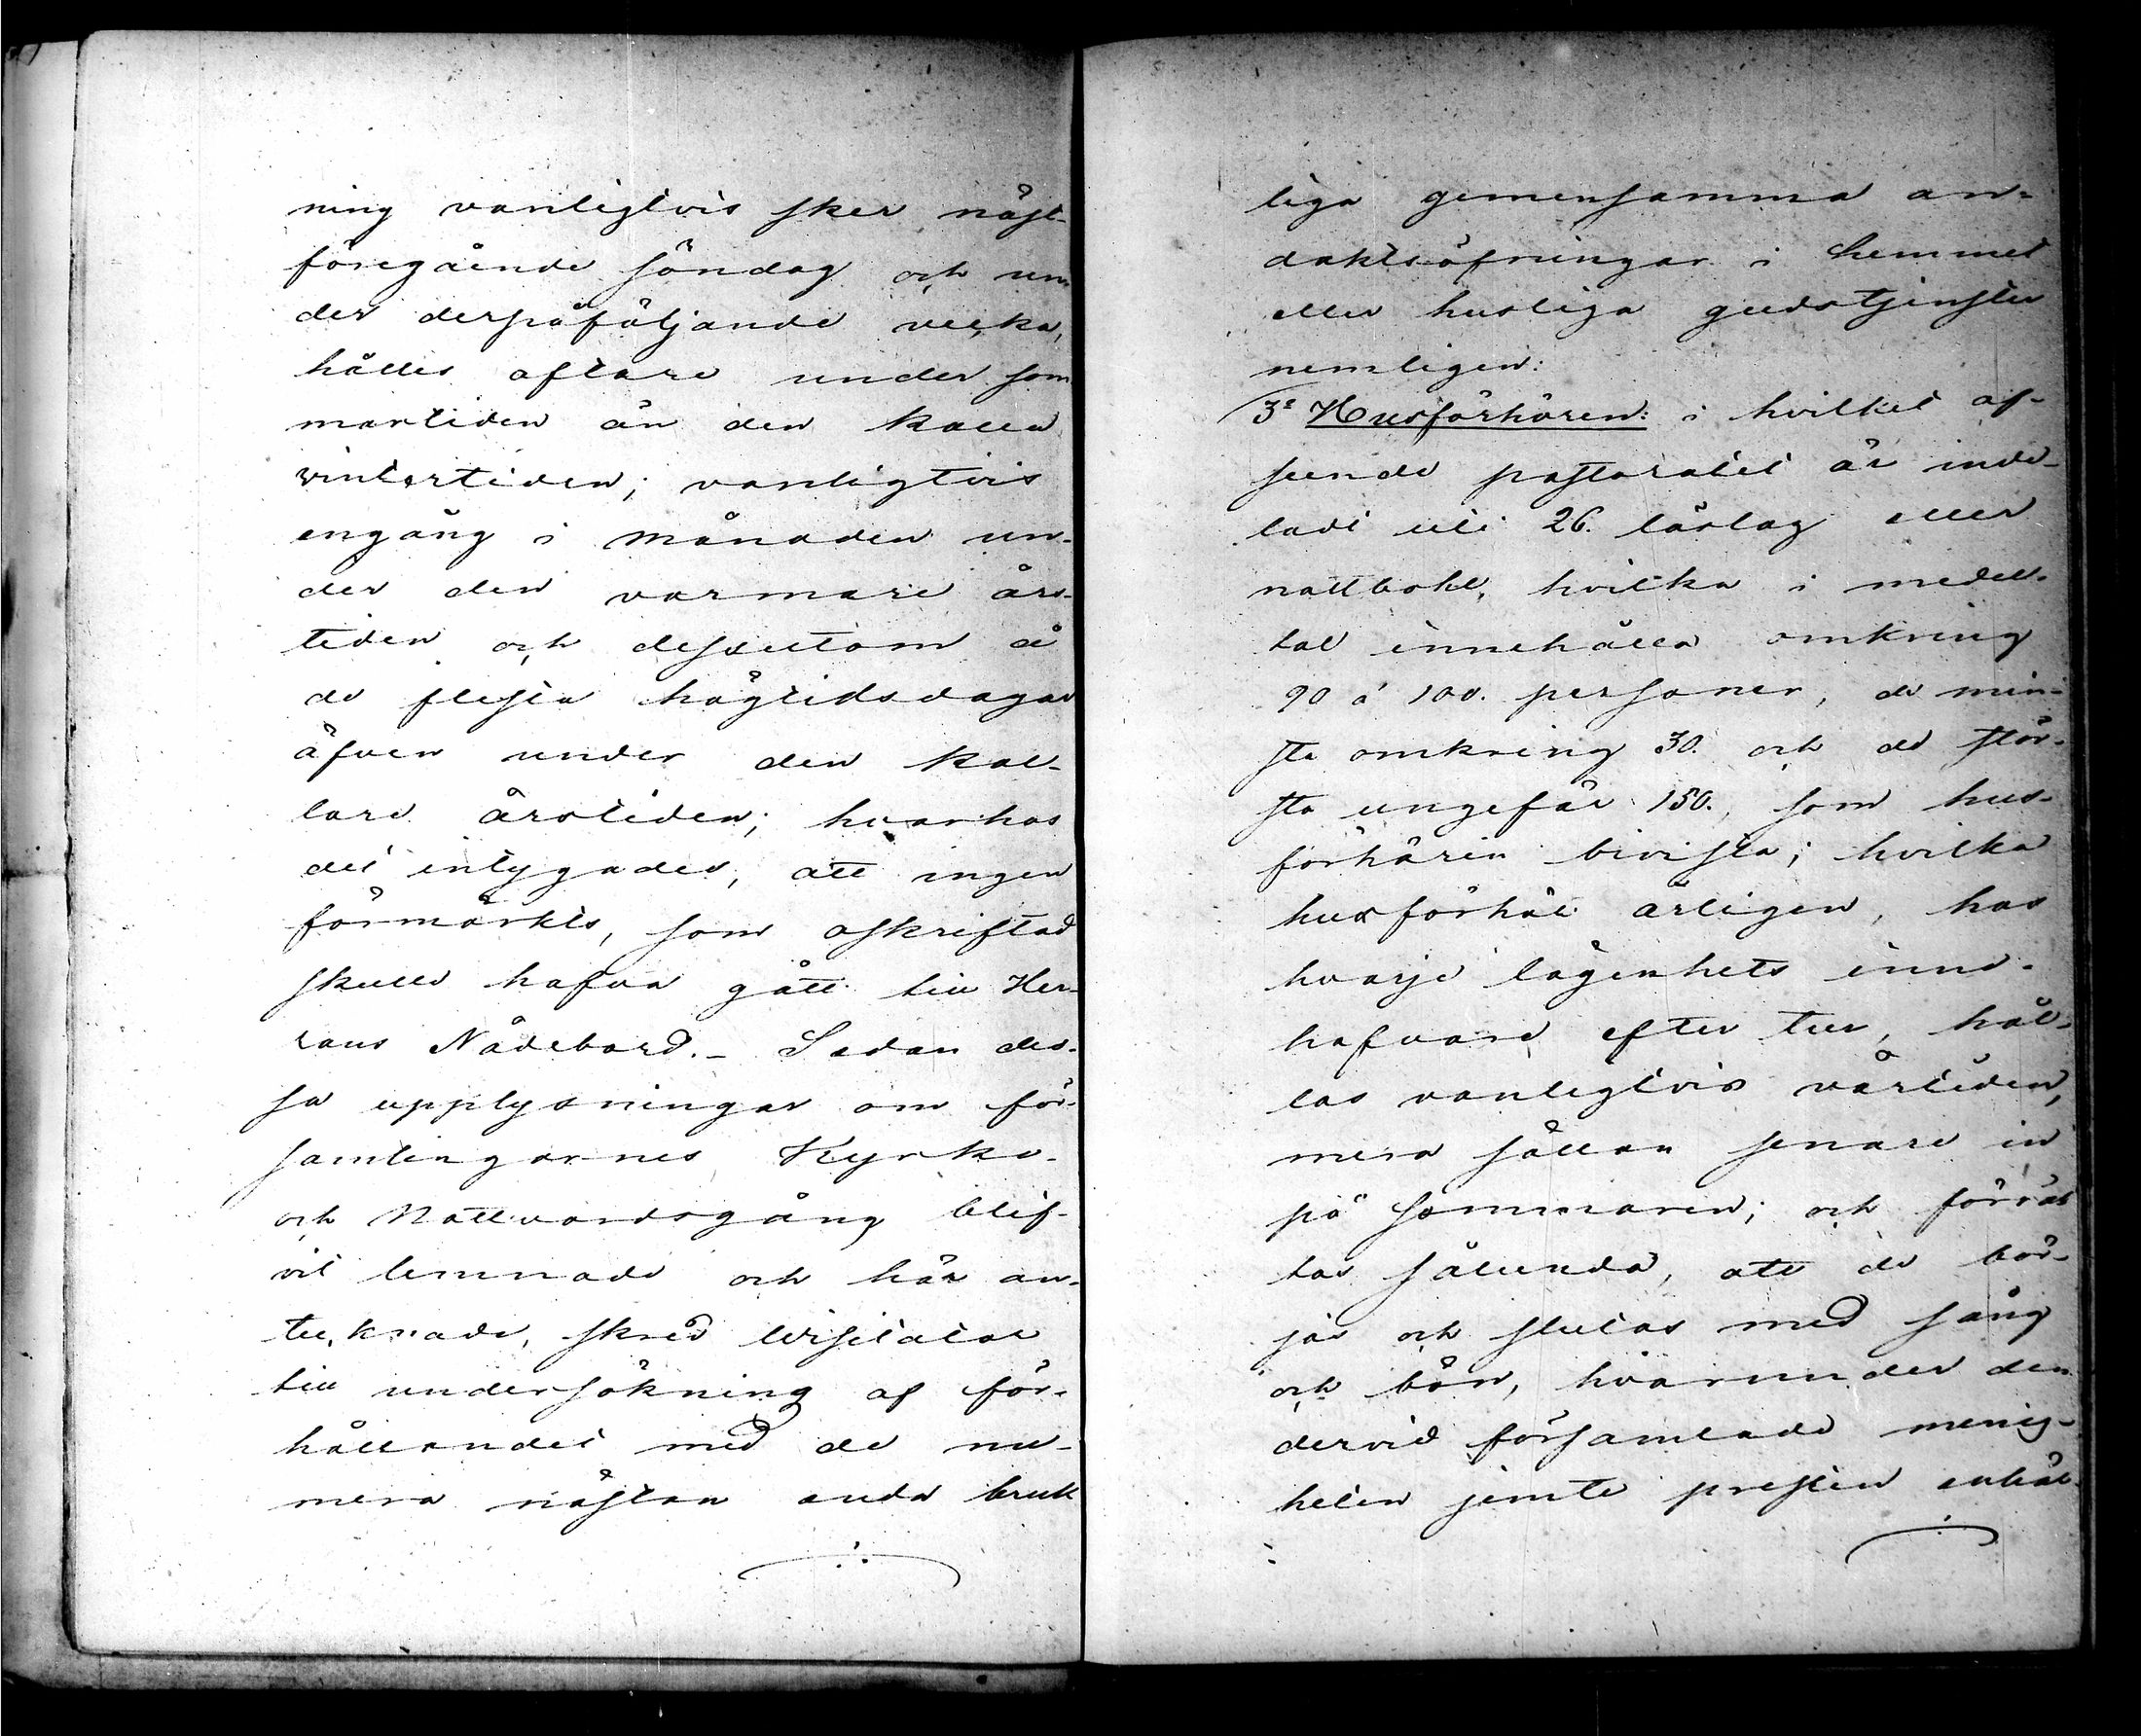 ning vanligtvis sker näst
föregående söndag och un-
der derpåföljande vecka,
hålles oftare under som
martiden än den kalla
vintertiden; vanligtvis
engång i månaden un-
der den varmare års-
tiden och dessutom å
de flesta högtidsdagar
äfven under den kal-
lare årstiden; hvarhos
det intygades, att ingen
förmärkts, som oskriftad
skulle hafva gått till Her-
rans Nådebord. - Sedan des-
sa upplysningar om för-
samlingarnes Kyrko-
och Nattvardsgång blif-
vit lemnade och här an-
tecknade, skred Visitator
till undersökning af för-
hållandet med de nu-
mera nästan enda bruk
liga gemensamma an-
daktsöfningar i hemmet
eller husliga gudstjenster
nemligen:
3: Husförhören: i hvilket af-
seende pastoratet är inde-
ladt uti 26. läslag eller
nattbohl, hvilka i medel-
tal innehålla omkring
90 á 100. personer, de min-
sta omkring 30. och de stör-
sta ungefär 150., som hus-
förhören bivista; hvilka
husförhör årligen, hos
hvarje lägenhets inne-
hafvare efter tur, hål-
las vanligtvis vårtiden,
mera sällan senare in
på sommaren; och förrät
tas sålunda, att de bör-
jas och slutas med sång
och bön, hvarunder den
dervid församlade menig-
heten jemte presten enhäl-